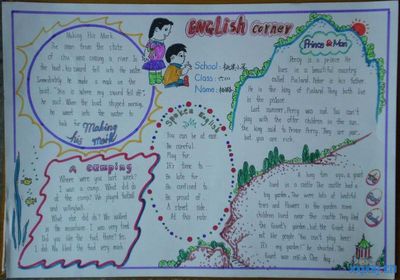 ENGLISH corner
Making His Mark
One man from the state
of Chu was crossing a river. In
the boat, his sword fell into the water.
Immediately he made a mark on the
boat. "This is where my sword fell off,"
he said. When the boat stopped moving,
he went into the water to
look for
Making
his mark
School:
Class:
Name:
Prince & Man
Percy is a prince. He
lives in a beautiful country
called Finland. Peter is his father.
He is the king of Finland. They both live
in the palace.
Last summer, Percy was sad. He can't
play with the other children in the sun.
the king said to Prince Percy. They are poor,
but you are rich.
A camping
Where were you last week?
I was a camp. What did do
at the camp? We played football
and volleyball.
What else did do? We walked
in the mountains. I was very tired.
Did you like the food there? No,
I did No liked the food very much.
Spoken English
You can be at ease.
Be careful.
Play for
It's time to—
Be late for
Be confused to
Be proud of
A street side.
At this rate
A long tim ago, a giant
lived in a castle. The castle had a
big garden. There were lots of beatiful
trees and flowers in the garden. some
children lived near the castle. They liked
the Giant's garden, but the Giant did
not like people. "You can't play here!
It's my garden!" he shouted. The
Giant was selfish. One day,